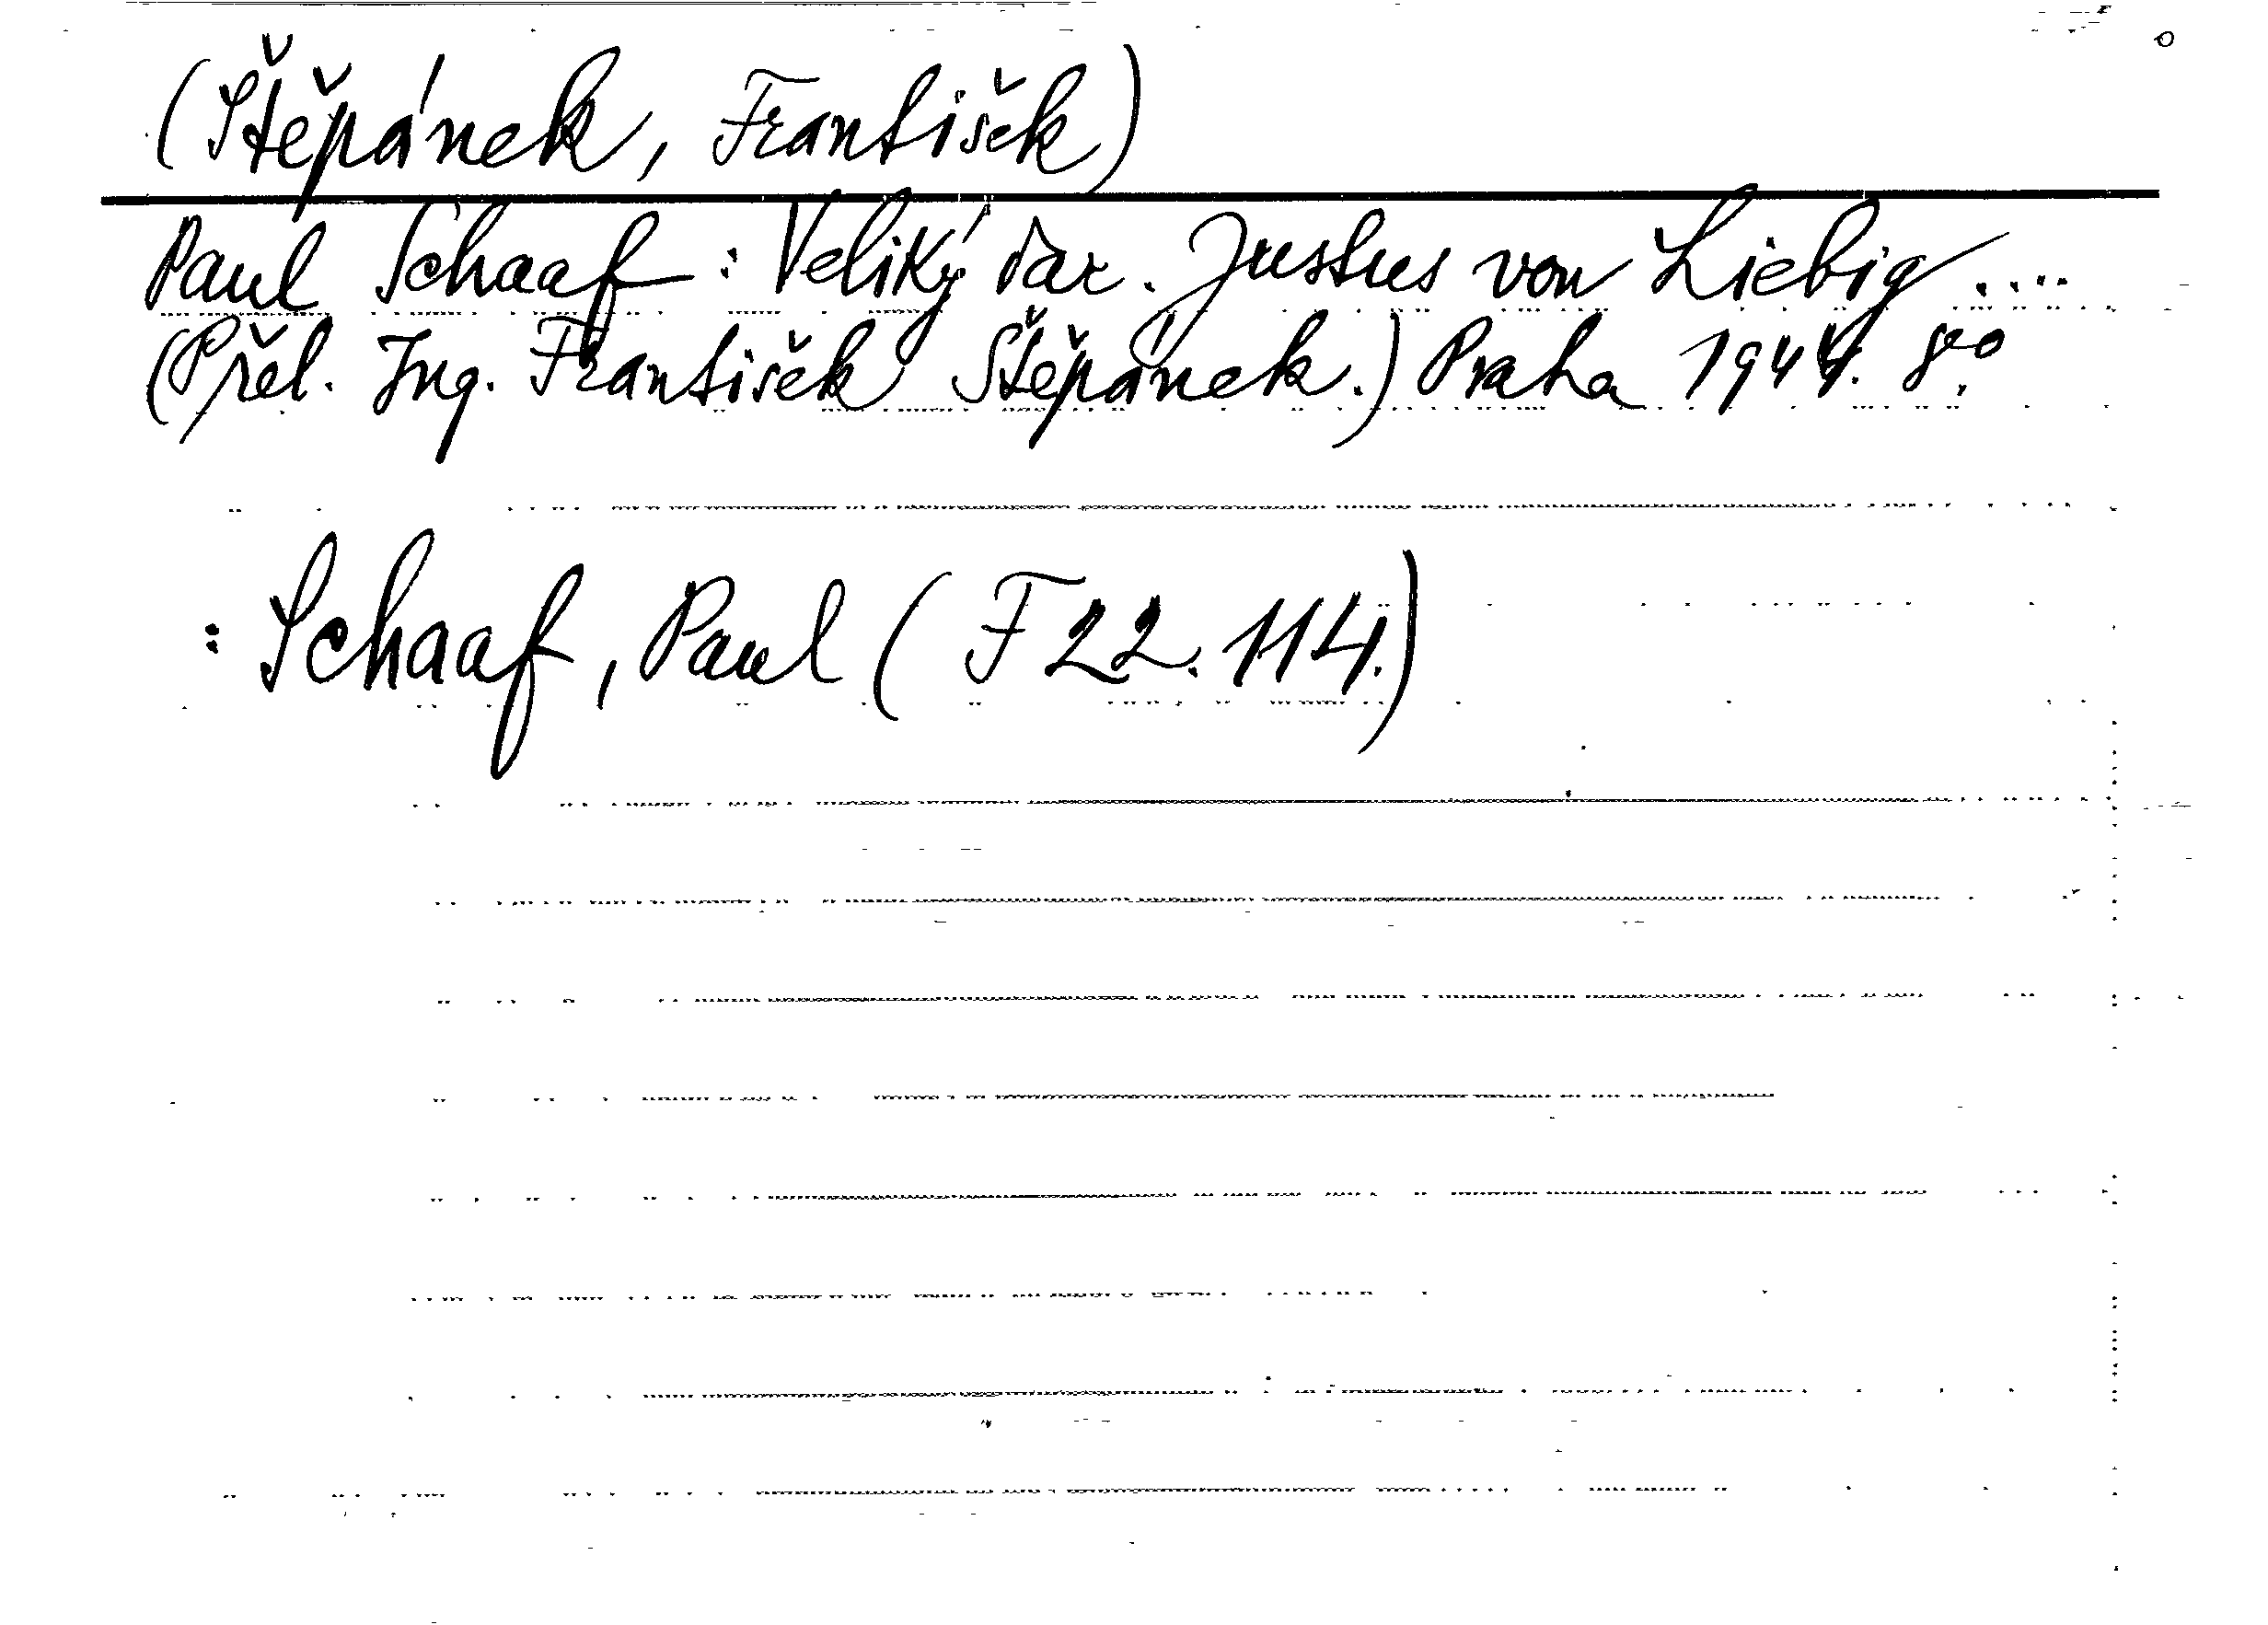 (Štěpánek, František)
Paul Schaaf: Veliký dar. Justus von Liebig....
(Přel. Ing. František Štěpánek.) Praha 1944. 8°.
: Schaaf, Paul (F 22.114.)